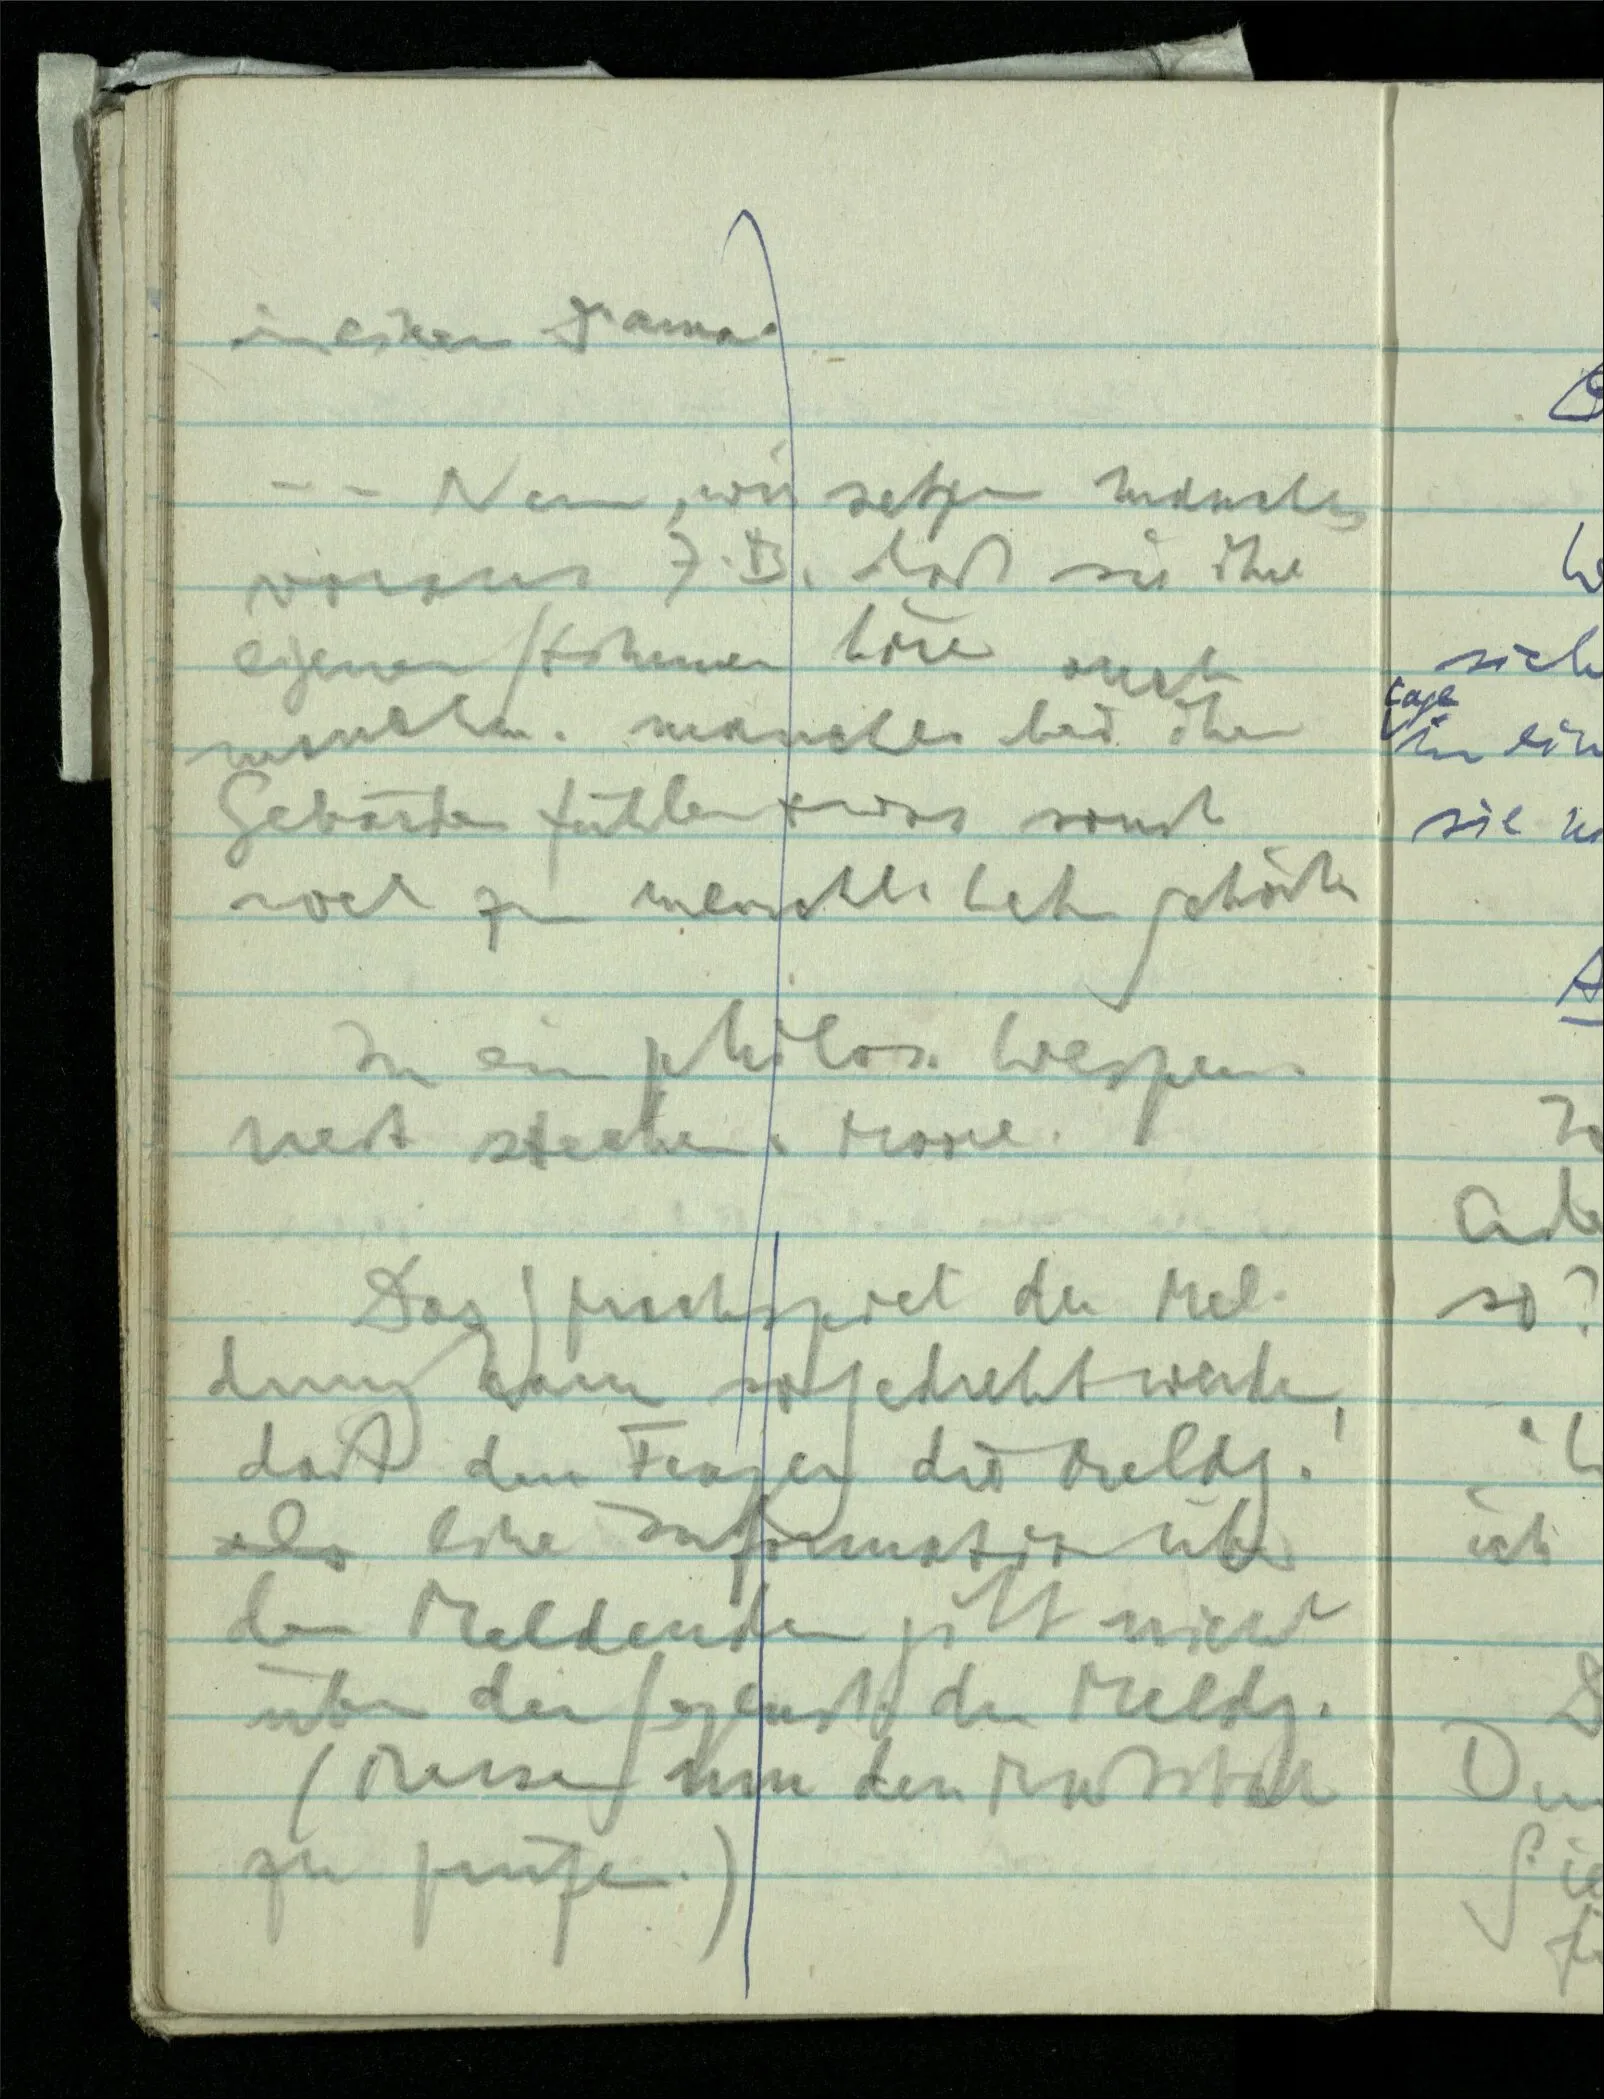 in einem Drama.
– – Nun, wir setzen manches
voraus z.B. daß sie ihre
eigenen Stimmen hören auch
manchm. manches bei ihren
Gebärden fühlen & was sonst
noch zum menschl. Leben gehört.
In ein philos. Wespen-
nest stechen. Moore.
Das Sprachspiel der Mel-
dung kann so gedreht werden,
daß dem Frager die Meldg.
als eine Information über
den Meldenden gilt nicht
über den Gegenst. der Meldg.
(Messen um den Maßstab
zu prüfen.)
sich
sage
in ein
sie
so?
ich